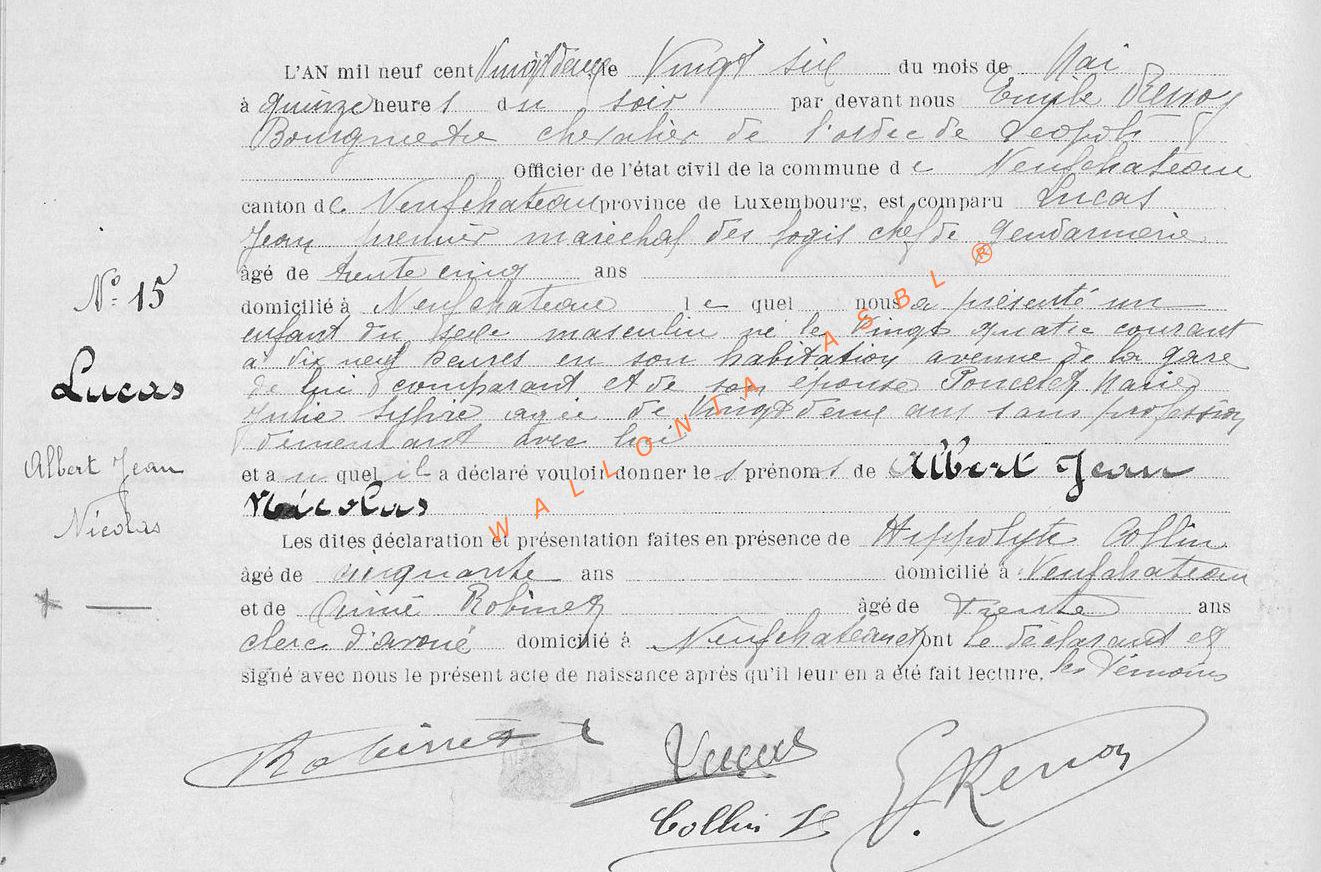 L'AN mil neuf cent Vingt deux, le Vingt six du mois de Mai
à quinze heures du soir par devant nous Emile Renoy
Bourgmestre chevalier de l'ordre de Léopold
Officier de l'état civil de la commune de Neufchateau
canton de Neufchateau province de Luxembourg, est comparu Lucas
Jean premier maréchal des logis chef de gendarmerie
âgé de trente cinq ans
domicilié à Neufchateau le quel nous a présenté un
enfant du sexe masculin né le Vingt quatre courant
à dix neuf heures en son habitation avenue de la gare
de lui comparant et de son épouse Poncelet Marie
Julie Sylvie agée de Vingt deux ans sans profession
demeurant avec lui
et auquel il a déclaré vouloir donner les prénoms de Albert Jean
Nicolas
Les dites déclaration et présentation faites en présence de Hippolyte Collin
âgé de cinquante ans domicilié à Neufchateau
et de Aimé Robinet âgé de Trente ans
clerc d'avoué domicilié à Neufchateau et ont le déclarant et
signé avec nous le présent acte de naissance après qu'il leur en a été fait lecture. les Témoins
N° 15
Lucas
Albert Jean
Nicolas
WALLONIA ASBL ®
Robinet
Lucas
Collin H
E. Renoy